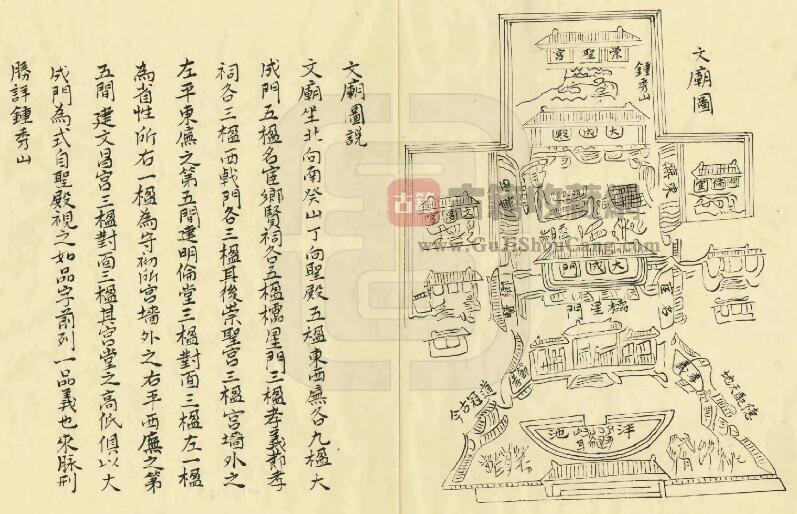 文廟圖
鍾秀山
崇聖宮
大成殿
大成門
櫺星門
泮池
德配天地
道冠古今
文廟圖說
文廟坐北向南癸山丁向聖殿五楹東西廡各九楹大
成門五楹名宦鄉賢祠各五楹櫺星門三楹孝義節孝
祠各三楹西戟門各三楹其後崇聖宮三楹宮墻外之
左平東廡之第五間建明倫堂三楹對面三楹左一楹
為省性所右一楹為守祠所宮墻外之右平西廡之第
五間建文昌宮三楹對面三楹其宮堂之高低俱以大
成門為式自聖殿視之如品字前列一品義也來脉刑
勝詳鍾秀山
古籍收藏網
www.GuJiShouCang.com